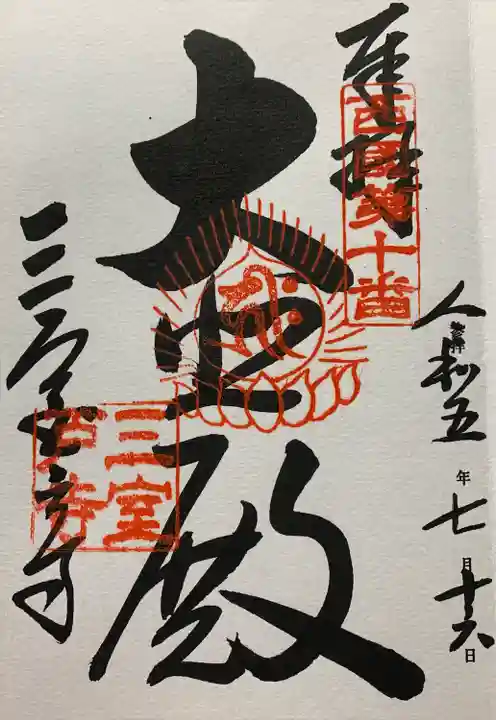 奉拝
西國第十番
令和五年七月十六日
大悲殿
三室戸寺
三室
戸寺